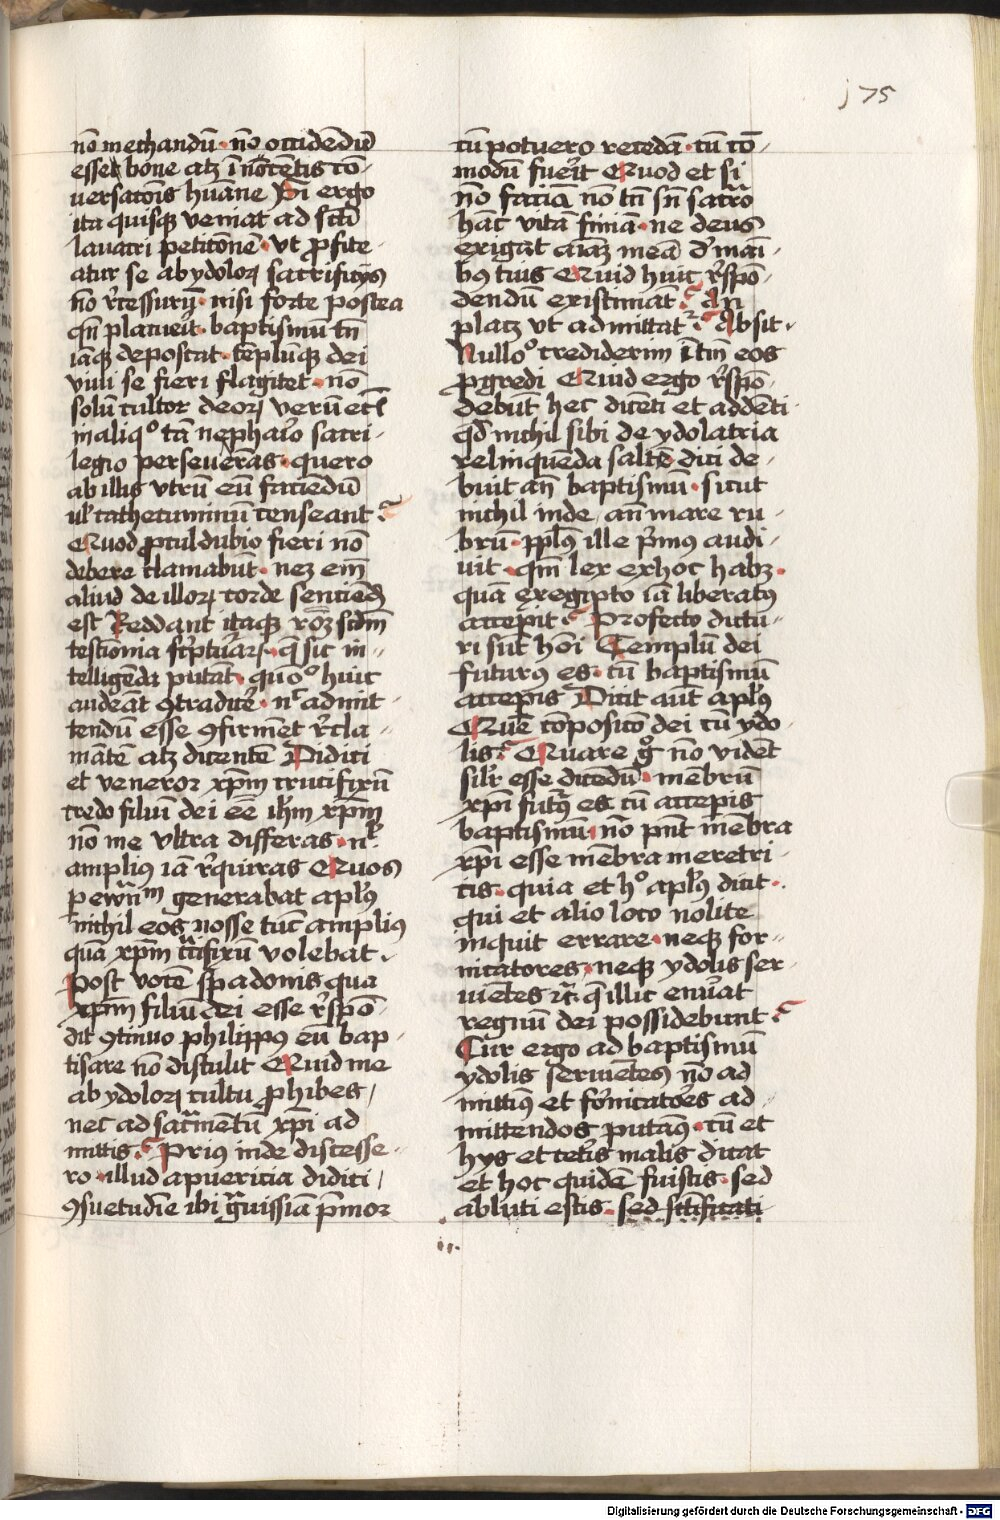 175
nō mechandū · nō occidēdū
esset bone atqꝫ īnocētis cō-
uersatōis hūane Si ergo
ita quisqꝫ veniat ad scti
lauacri petitōnē · vt ꝓfite-
atur se ab ydoloꝝ sacrificijs
nō recessurū · nisi forte postea
qn̄ placuerit · baptismū tn̄
iāqꝫ deposcat · tēplūqꝫ dei
viui se fieri flagitet · nō
solū cultor deoꝝ verū etī
in aliqͦ tā nephario sacri-
legio perseuerās · quero
ab illis vtrū eū faciēdū
vl̓ cathecuminū censeant ?
Quod ꝓculdubio fieri nō
debere clamabūt · neqꝫ em̄
aliud de illoꝝ corde sentiēdū
est Reddant itaqꝫ rōꝫ scdm̄
testīonia scripturaꝝ · q̄ sic in-
telligēda putāt · quōͦ huic
audeāt ꝯtradicē · nͨ admit-
tendū esse ꝯfirmēt rcla-
mātē atqꝫ dicentē Didici
et veneror xp̄m crucifixū
credo filiū dei eē ih̄m xp̄m
nō me vltra differas · n̄
ampliꝰ iā rquiras Quos
per ewn̄m generabat apl̓ꝰ
nichil eos nosse tūc ampliꝰ
quā xp̄m crucifixū volebat ·
Post vocē spadonis qua
xp̄m filiū dei esse rspō-
dit ꝯtinuo philippꝰ eū bap-
tisare nō distulit Quid me
ab ydoloꝝ cultu ꝓhibes /
nec ad sacramētū xp̄i ad
mittis ? Priꝰ inde discesse-
ro · illud a puericia didici /
ꝯsuetudīe ibi gͣuissīa p̄mor
cū potuero recedā · cū cō-
modū fuerit Quod et si
nō faciā nō tn̄ sn̄ sacrō
hāc vitā finiā · ne deus
exigat aīaꝫ meā d̓ mai-
bꝰ tuis Quid huic rspō-
dendū existimāt ? An
placꝫ vt admittatᷣ ? Absit ·
Nulloͦ crediderim ītm̄ eos
ꝓgredi Quid ergo rspō-
debūt hec dicēti et addēti
qd̓ nichil sibi de ydolatria
relinquēda saltē dici de-
buit an̄ baptismū · sicut
nichil inde / an̄ mare ru-
brū · ppl̓ꝰ ille p̄mꝰ audi-
uit · qm̄ lex ex hoc habꝫ ·
quā ex egipto iā liberatꝰ
accepit ? Profecto dictu-
ri sūt hōi Templū dei
futurꝰ es · cū baptismū
acceperis Dicit aūt apl̓ꝰ
Que cōposicō dei cū ydo-
lis ? Quare gͦ nō vidēt
sil̓r esse dicēdū · mēbrū
xp̄i futurꝰ es cū acceperis
baptismū · nō pn̄t mēbra
xp̄i esse mēbra meretri-
cis · quia et hͦ apl̓ꝰ dicit ·
qui et alio loco nolite
inquit errare · neqꝫ for-
nicatores · neqꝫ ydolis ser-
uiētes ⁊c̄ q̄ illic enūat
regnū dei possidebunt ?
Cur ergo ad baptismū
ydolis seruiētes nō ad
mittimꝰ et fornicatores ad
mittendos putamꝰ · cū et
hys et ceteris malis dicat
et hoc quidē fuistis · sed
abluti estis · sed sctīficati
Digitalisierung gefördert durch die Deutsche Forschungsgemeinschaft - DFG